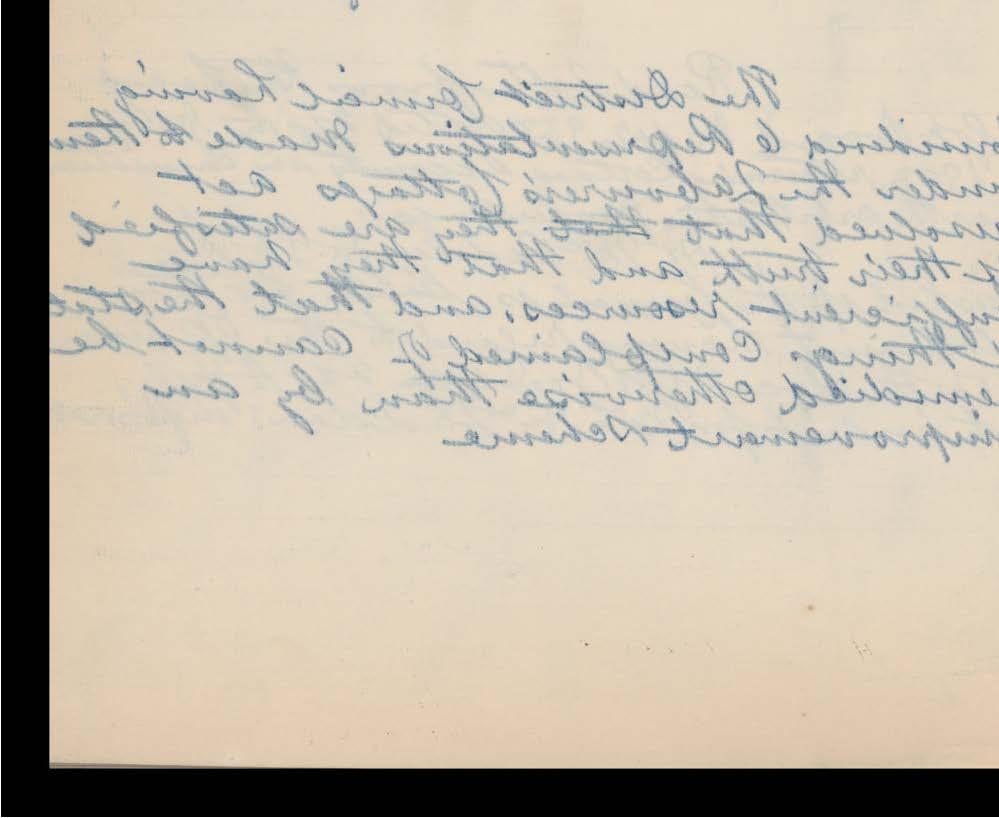 The District Council having
onsidered 6 Representations made to them
nder the Labourers Cottages act
esolved that that they are satisfied
f their truth and that they have
ufficient resources, and that the stat
f things complained of cannot be
emedied otherwise than by an
improvement scheme